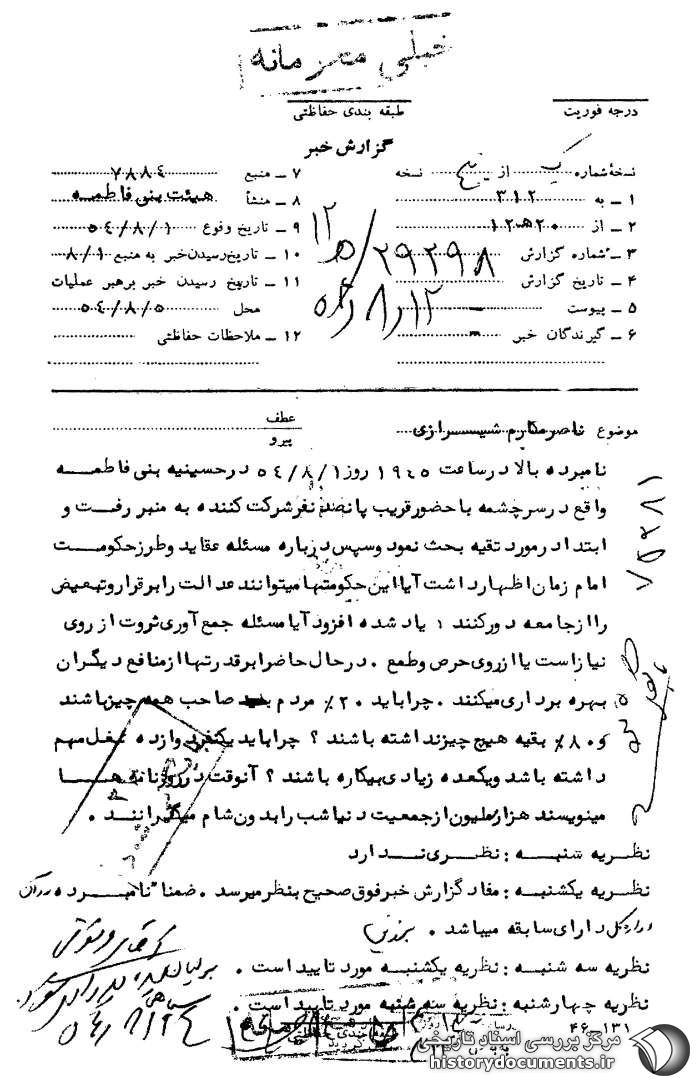 خیلی محرمانه
درجه فوریت
طبقه بندی حفاظتی
گزارش خبر
نسخه شماره یک از پنج نسخه
۱ ـ به ۳۱۲
۲ ـ از ۲۰هـ۱۲
۳ ـ شماره گزارش ۲۹۲۹۸/ه۱۲
۴ ـ تاریخ گزارش ۱۲/۸/۵۴
۵ ـ پیوست
۶ ـ گیرندگان خبر
۷ ـ منبع ۷۸۸۴
۸ ـ منشأ هیئت بنی فاطمه
۹ ـ تاریخ وقوع ۵۴/۸/۱
۱۰ ـ تاریخ رسیدن خبر به منبع ۸/۱
۱۱ ـ تاریخ رسیدن خبر برهبر عملیات
محل ۵۴/۸/۵
۱۲ ـ ملاحظات حفاظتی
موضوع ناصر مکارم شیرازی
عطف
پیرو
نامبرده بالا در ساعت ۱۹۴۵ روز ۵۴/۸/۱ در حسینیه بنی فاطمه
واقع در سرچشمه با حضور قریب پانصد نفر شرکت کننده به منبر رفت و
ابتدا در مورد تقیه بحث نمود و سپس درباره مسئله عقاید و طرز حکومت
امام زمان اظهار داشت آیا این حکومتها میتوانند عدالت را برقرار و تبعیض
را از جامعه دور کنند ؛ یاد شده افزود آیا مسئله جمع آوری ثروت از روی
نیاز است یا از روی حرص و طمع . در حال حاضر ابرقدرتها از منافع دیگران
بهره برداری میکنند . چرا باید ۲۰٪ مردم صاحب همه چیز باشند
و ۸۰٪ بقیه هیچ چیز نداشته باشند ؟ چرا باید یکنفر دوازده شغل مهم
داشته باشد و یکعده زیادی بیکاره باشند ؟ آنوقت در روزنامه ها
مینویسند هزار ملیون از جمعیت دنیا شب را بدون شام میگذرانند .
نظریه شنبه : نظری ندارد
نظریه یکشنبه : مفاد گزارش خبر فوق صحیح بنظر میرسد . ضمنا" نامبرده در آن
دارای سابقه میباشد .
نظریه سه شنبه : نظریه یکشنبه مورد تایید است .
نظریه چهارشنبه : نظریه سه شنبه مورد تایید است .
۴۶-۱۳۱
مرکز بررسی اسناد تاریخی
historydocuments.ir